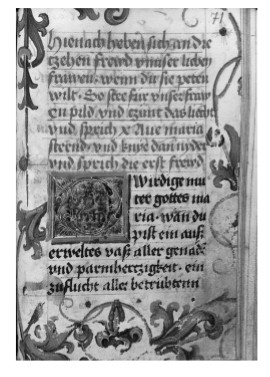 71
Hienach heben sich an die
czehen frewd vnnser lieben
frawen · wenn du sie peten
wilt · So stee fur vnser fraw
en pild vnd czünt das liecht
vnd sprich x Aue maria
steend · vnd knye dan nyder
vnd sprich die erst frewd
O wirdige mu
ter gottes ma
ria · wan du
pist ein auß
erweltes vaß aller genad
vnd parmhertzigkeit · ein
zuflucht aller betrübtenn